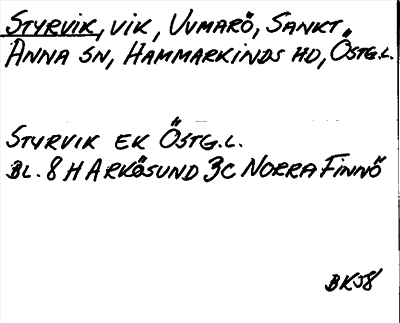 STYRVIK, VIK, UVMARÖ, SANKT
ANNA SN, HAMMARKINDS HD, ÖSTG.L.
STYRVIK EK ÖSTG.L.
BL. 8 H ARKÖSUND 3C NORRA FINNÖ
BK58